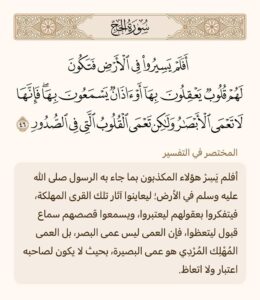 سُورَةُ الحَجِّ
أَفَلَمْ يَسِيرُوا۟ فِى ٱلْأَرْضِ فَتَكُونَ
لَهُمْ قُلُوبٌ يَعْقِلُونَ بِهَآ أَوْ ءَاذَانٌ يَسْمَعُونَ بِهَا ۖ فَإِنَّهَا
لَا تَعْمَى ٱلْأَبْصَٰرُ وَلَٰكِن تَعْمَى ٱلْقُلُوبُ ٱلَّتِى فِى ٱلصُّدُورِ ٤٦
المختصر في التفسير
أفلم يَسِرْ هؤلاء المكذبون بما جاء به الرسول صلى الله
عليه وسلم في الأرض؛ ليعاينوا آثار تلك القرى المهلكة،
فيتفكروا بعقولهم ليعتبروا، ويسمعوا قصصهم سماع
قبول ليتعظوا، فإن العمى ليس عمى البصر، بل العمى
المُهْلِك المُرْدِي هو عمى البصيرة، بحيث لا يكون لصاحبه
اعتبار ولا اتعاظ.